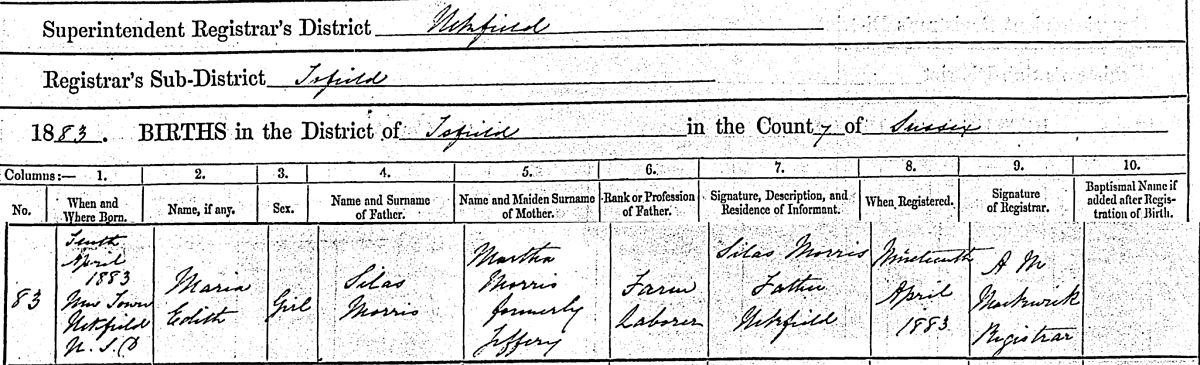 Superintendent Registrar's District Uckfield
Registrar's Sub-District Isfield
1883. BIRTHS in the District of Isfield in the County of Sussex
Columns:— 1. 2. 3. 4. 5. 6. 7. 8. 9. 10.
No. When and Where Born. Name, if any. Sex. Name and Surname of Father. Name and Maiden Surname of Mother. Rank or Profession of Father. Signature, Description, and Residence of Informant. When Registered. Signature of Registrar. Baptismal Name if added after Registration of Birth.
83
Tenth
April
1883
New Town
Uckfield
Maria
Edith
Girl
Silas
Morris
Martha
Morris
formerly
Jeffery
Farm
Laborer
Silas Morris
Father
Uckfield
Nineteenth
April
1883
A M
Markwick
Registrar